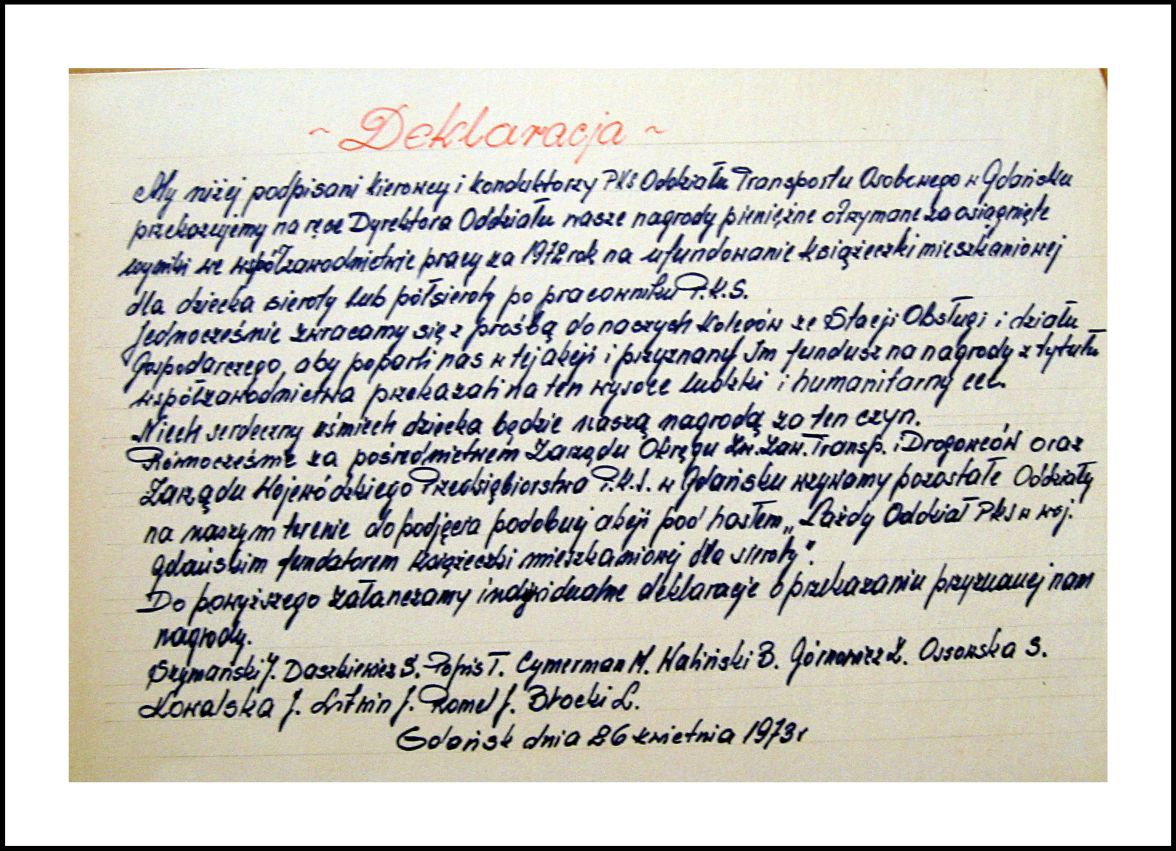 ~ Deklaracja ~
My niżej podpisani kierowcy i konduktorzy PKS Oddziału Transportu Osobowego w Gdańsku
przekazujemy na ręce Dyrektora Oddziału nasze nagrody pieniężne otrzymane za osiągnięte
wyniki we współzawodnictwie pracy za 1972 rok na ufundowanie książeczki mieszkaniowej
dla dziecka sieroty lub półsieroty po pracowniku P.K.S.
Jednocześnie zwracamy się z prośbą do naszych kolegów ze Stacji Obsługi i działu
Gospodarczego, aby poparli nas w tej akcji i przyznany Im fundusz na nagrody z tytułu
współzawodnictwa przekazali na ten wysoce ludzki i humanitarny cel.
Niech serdeczny uśmiech dziecka będzie naszą nagrodą za ten czyn.
Równocześnie za pośrednictwem Zarządu Okręgu Zw. Zaw. Transp. i Drogowców oraz
Zarządu Wojewódzkiego Przedsiębiorstwa P.K.S. w Gdańsku wzywamy pozostałe Oddziały
na naszym terenie do podjęcia podobnej akcji pod hasłem „Każdy Oddział PKS w woj.
gdańskim fundatorem książeczki mieszkaniowej dla sieroty".
Do powyższego załanczamy indywidualne deklaracje o przekazaniu przyznanej nam
nagrody.
Szymański J. Daszkiewicz S. Popis T. Cymerman M. Kaliński B. Górnowicz Z. Ossowska S.
Kowalska J. Litwin J. Romel J. Błocki L.
Gdańsk dnia 26 kwietnia 1973 r